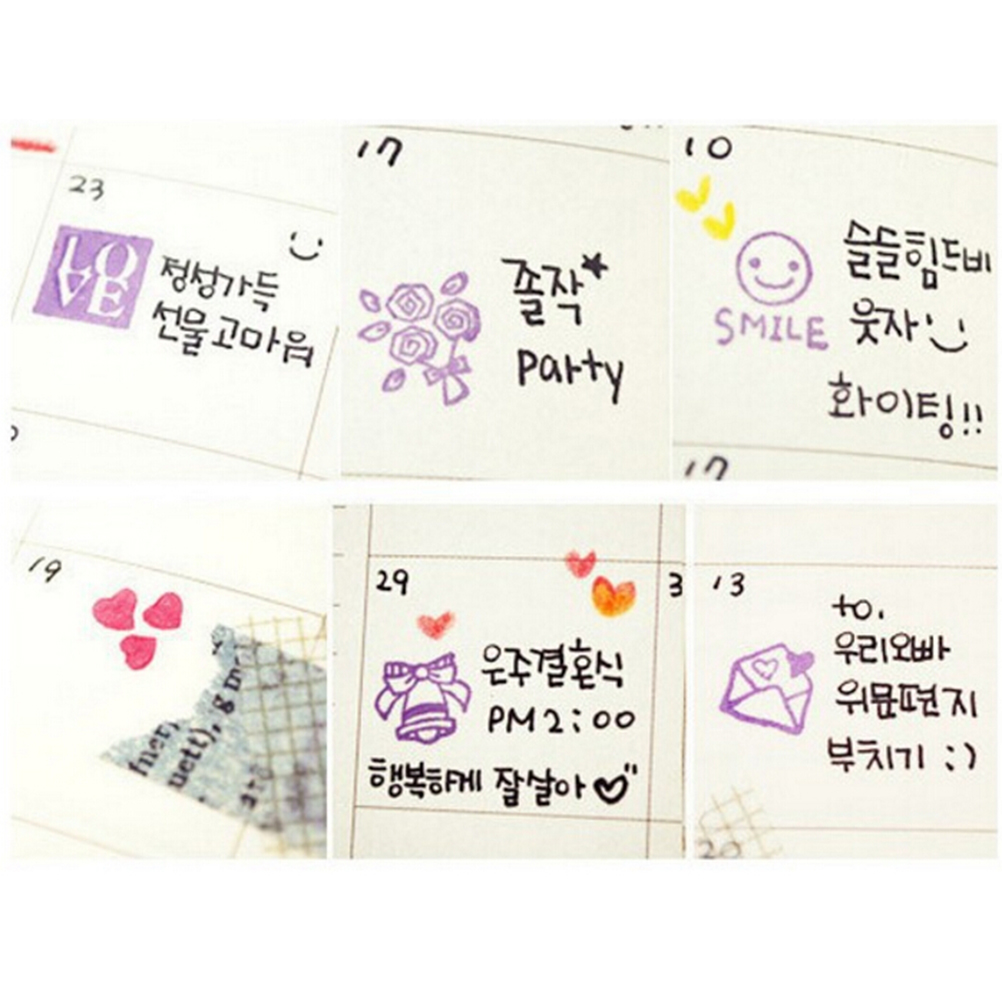 23
LOVE
정성가득
선물고마워
17
졸작
Party
10
SMILE
슬슬힘드비
웃자
화이팅!!
17
19
fner),
uett), g m
29
3
은주결혼식
PM 2:00
행복하게 잘살아
13
to.
우리오빠
위문편지
부치기 :)
20